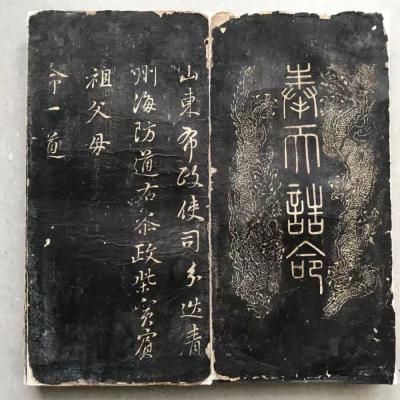 奉天誥命
山東布政使司分巡青
州海防道右叅政柴寅賓
祖父母
命一道